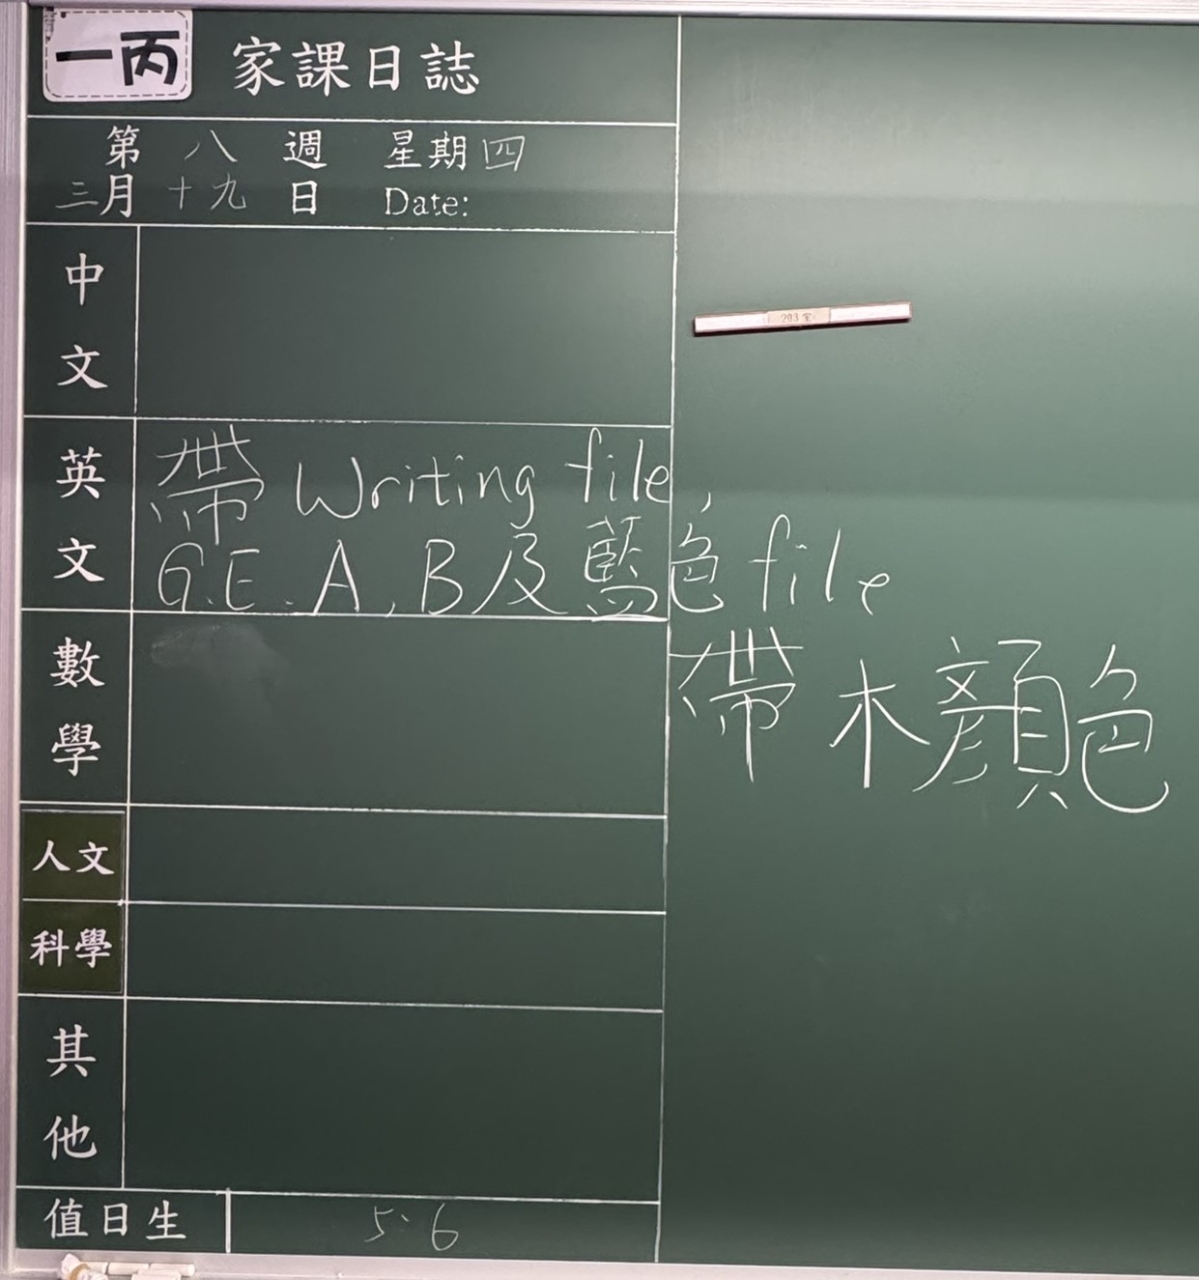 一丙 家課日誌
第 八 週 星期四
三月 十九 日 Date:
中文
英文
帶 Writing file,
G.E. A, B及藍色 file
帶木顏色
數學
人文
科學
其他
值日生 5、6
203室